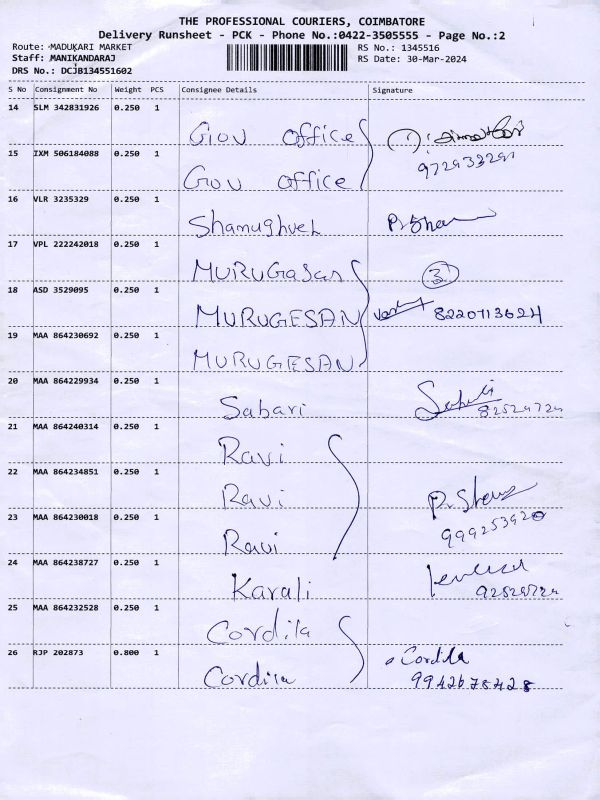 THE PROFESSIONAL COURIERS, COIMBATORE
Delivery Runsheet - PCK - Phone No.:0422-3505555 - Page No.:2
Route: MADUKARI MARKET
Staff: MANIKANDARAJ
DRS No.: DCJB134551602
RS No.: 1345516
RS Date: 30-Mar-2024
S No Consignment No Weight PCS Consignee Details Signature
14 SLM 342831926 0.250 1
Gov office
15 IXM 506184088 0.250 1
Gov office
16 VLR 3235329 0.250 1
Shamughveh P. Sha
17 VPL 222242018 0.250 1
MURUGasas 3
18 ASD 3529095 0.250 1
MURUGESAN 8220713624
19 MAA 864230692 0.250 1
MURUGESAN
20 MAA 864229934 0.250 1
Sabari Sabari
21 MAA 864240314 0.250 1
Ravi
22 MAA 864234851 0.250 1
Ravi
23 MAA 864230018 0.250 1
Ravi
24 MAA 864238727 0.250 1
Karali
25 MAA 864232528 0.250 1
Cordila
26 RJP 202873 0.800 1
Cordila Cordila
9942678428